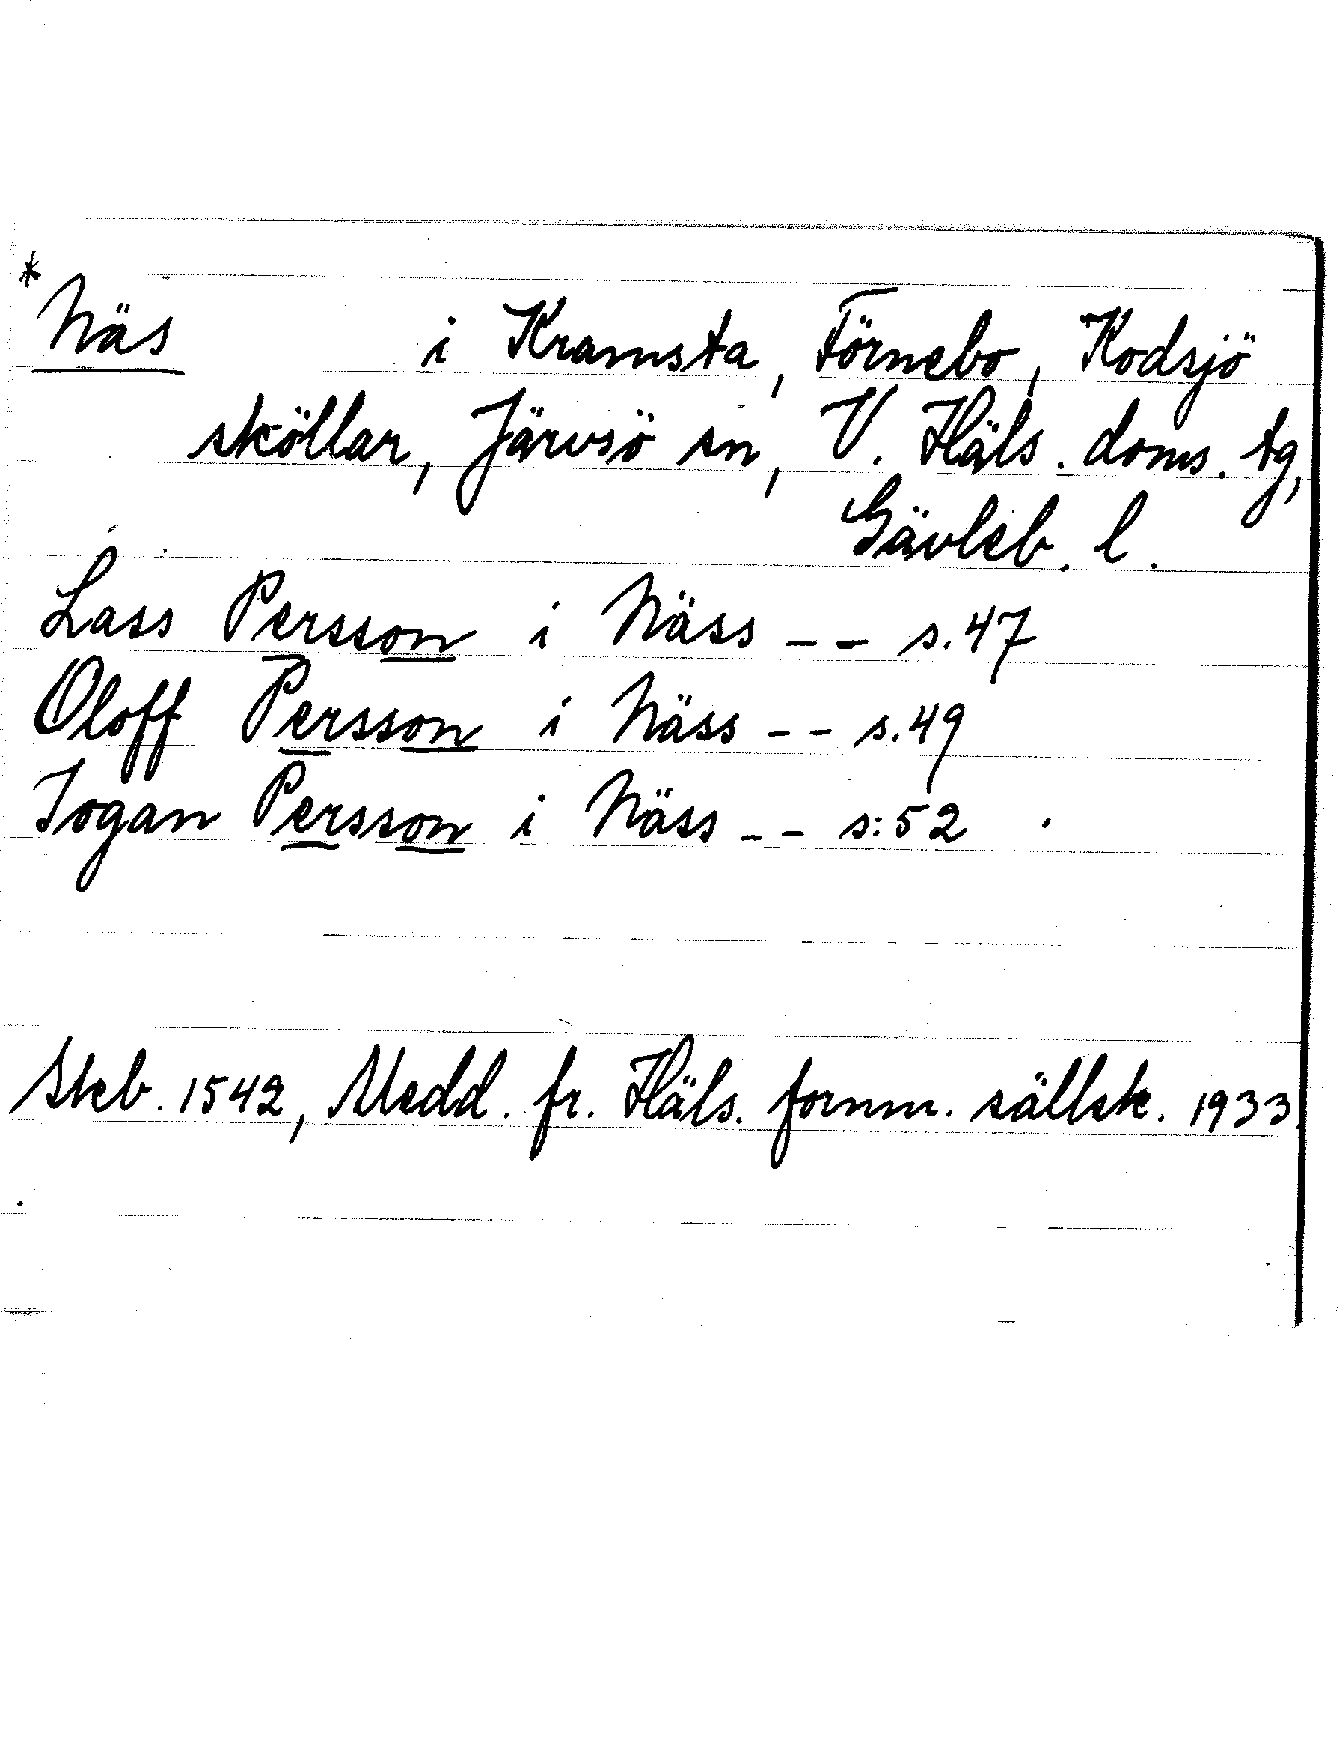 * Näs i Kramsta, Förnebo, Kodsjö
sköllar, Järvsö sn, V. Häls. doms. tg,
Gävleb. l.
Lass Persson i Näss -- s. 47
Oloff Persson i Näss -- s. 49
Jogan Persson i Näss -- s: 52
Skb. 1542, Medd. fr. Häls. fornm. sällsk. 1933.